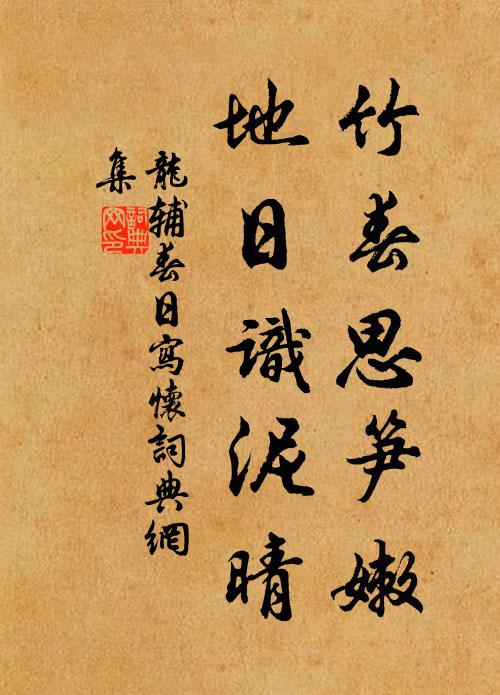 竹春思笋嫩
地日識泥晴
龍輔春日寫懷詞典網
集
詞典網印